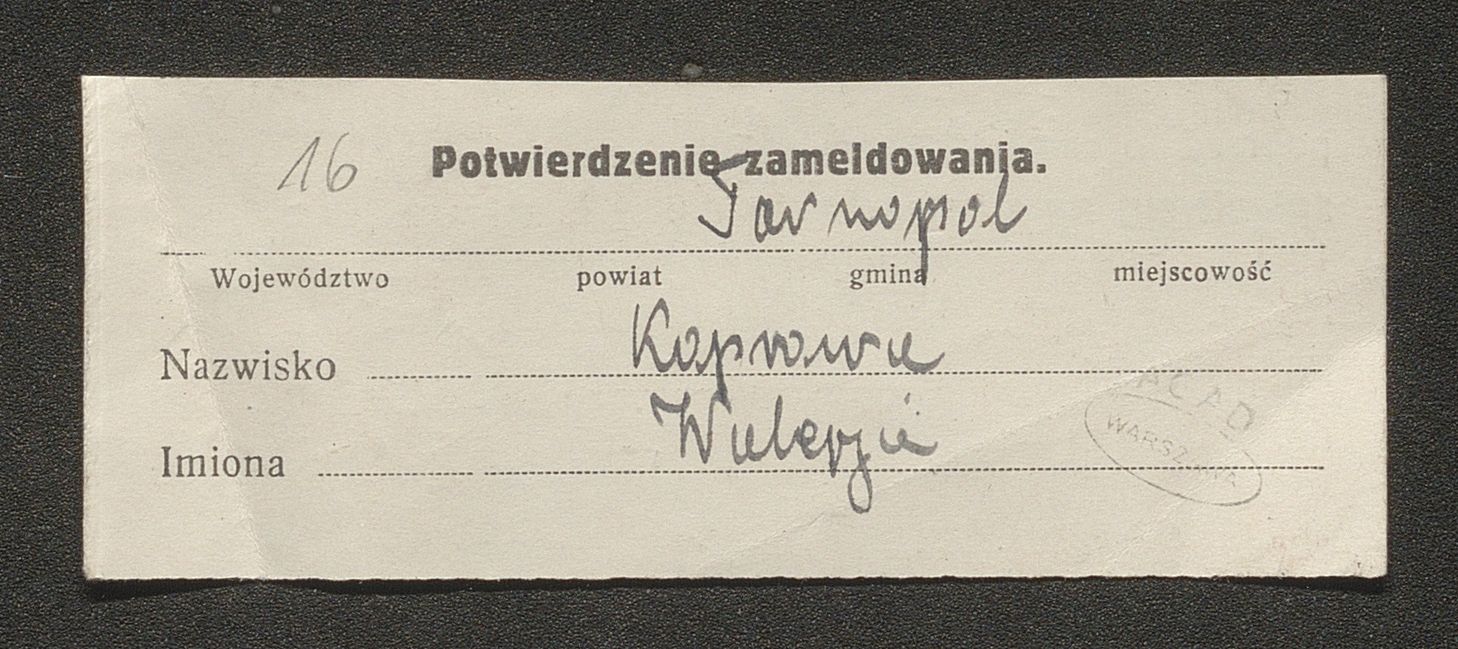 16 Potwierdzenie zameldowania.
Tarnopol
Województwo powiat gmina miejscowość
Nazwisko Koprowa
Imiona Walerja
AGAD
WARSZAWA